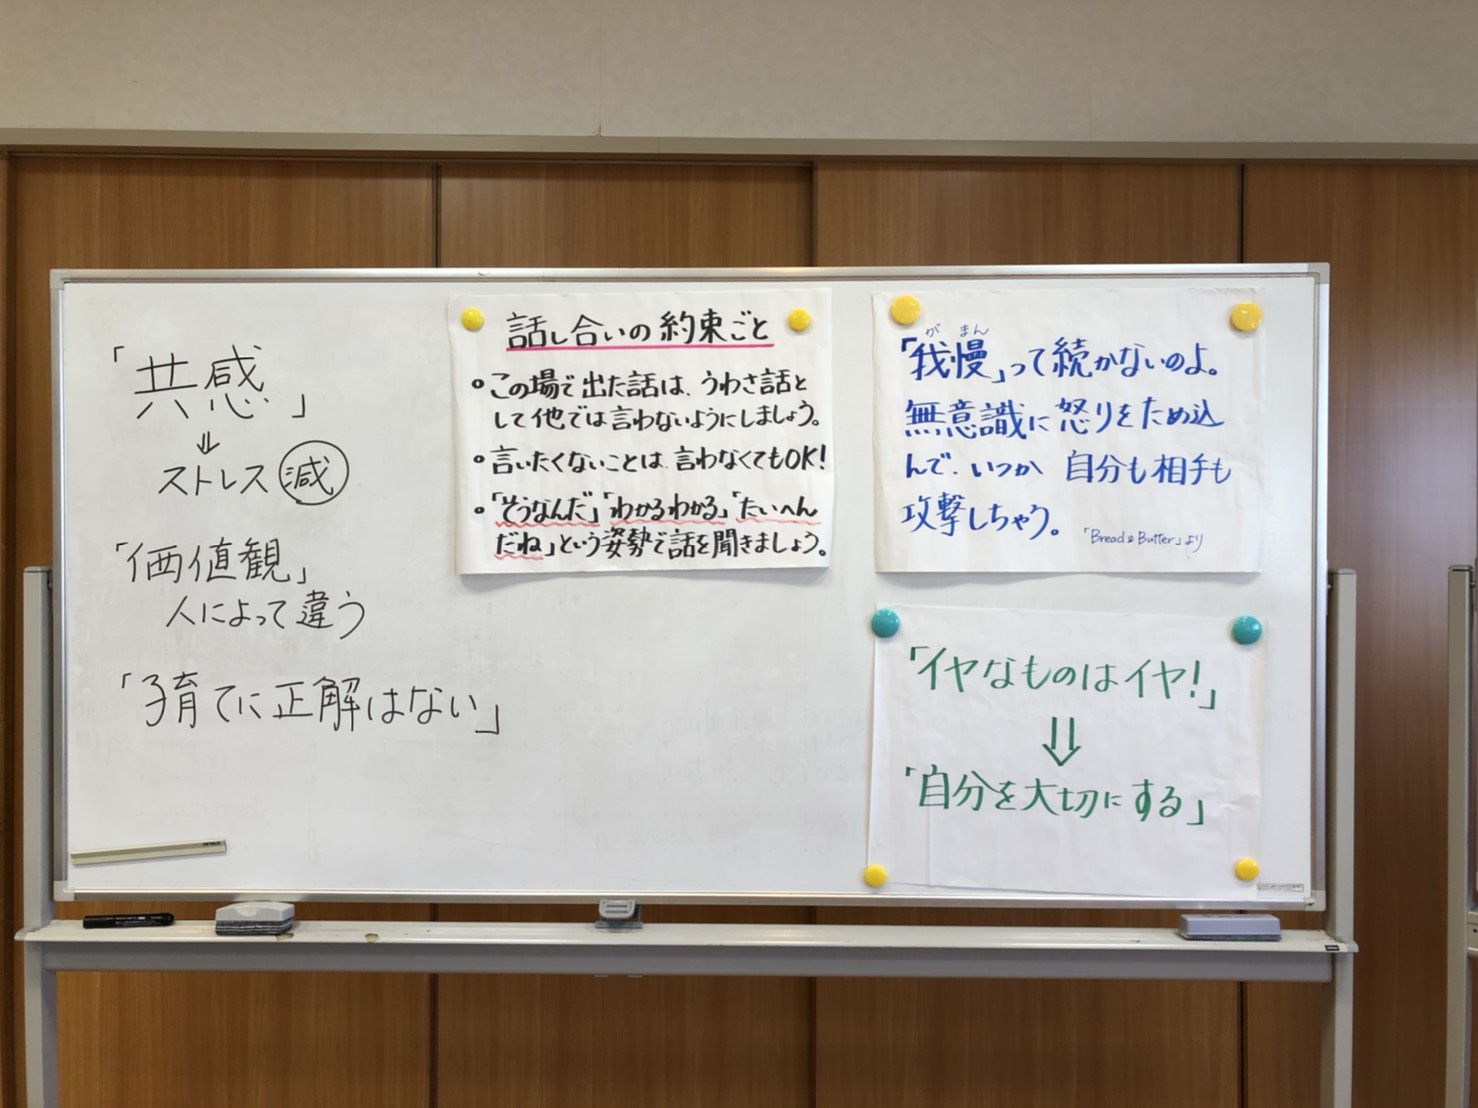 「共感」
⇓
ストレス減
「価値観」
人によって違う
「子育てに正解はない」
話し合いの約束ごと
• この場で出た話は、うわさ話と
して他では言わないようにしましょう。
• 言いたくないことは、言わなくてもOK!
• 「そうなんだ」「わかるわかる」「たいへん
だね」という姿勢で話を聞きましょう。
がまん
「我慢」って続かないのよ。
無意識に怒りをため込
んで、いつか 自分も相手も
攻撃しちゃう。
「Bread & Butter」より
「イヤなものはイヤ!」
⇓
「自分を大切にする」